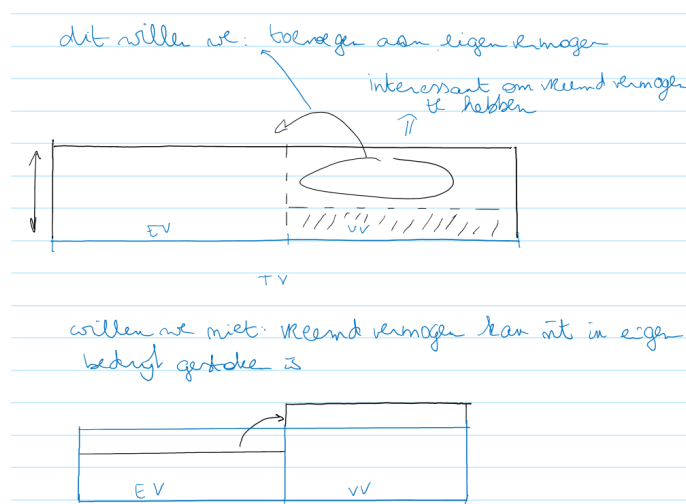 dit willen we: toevoegen aan eigen vermogen
interessant om vreemd vermogen
te hebben
EV
VV
TV
willen we niet: vreemd vermogen kan in eigen
bedrijf gestoken is
EV
VV